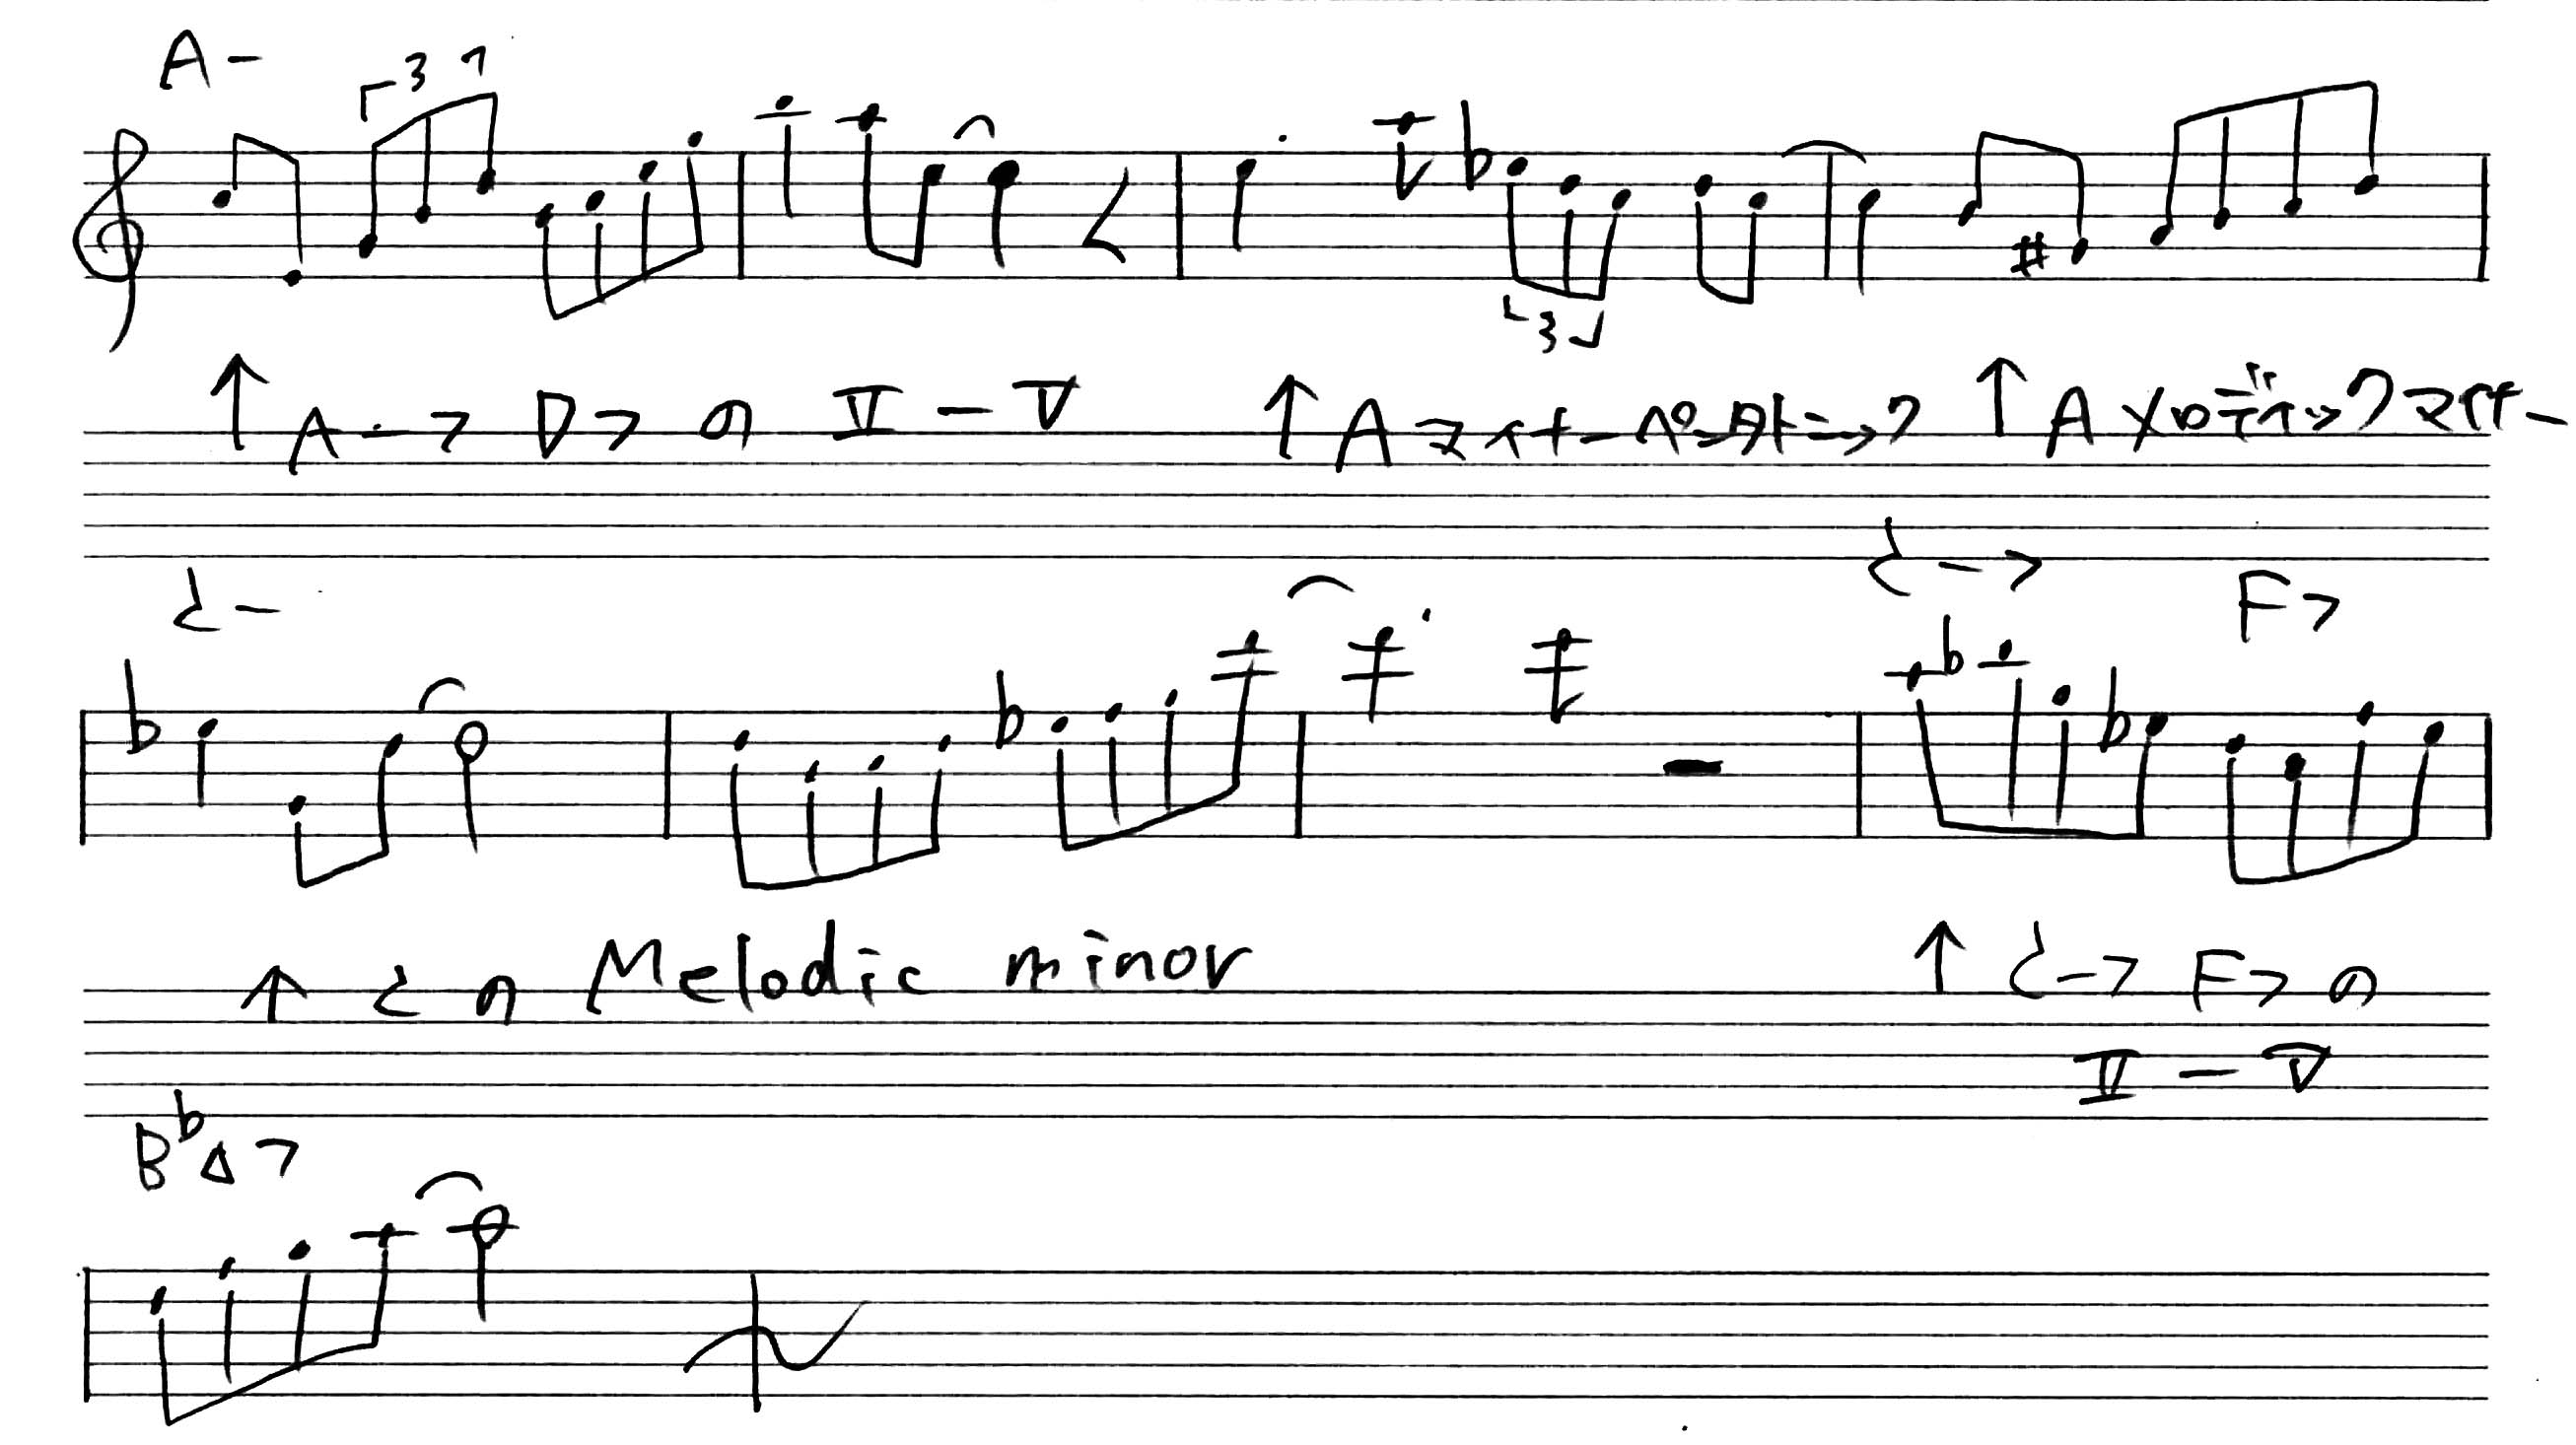 A-
3
3
↑ A-7 D7 の Ⅱ-Ⅴ ↑ A マイナーペンタトニック ↑ A メロディックマイナー
C-7
C- F7
↑ C の Melodic minor ↑ C-7 F7 の
Ⅱ-Ⅴ
B♭△7